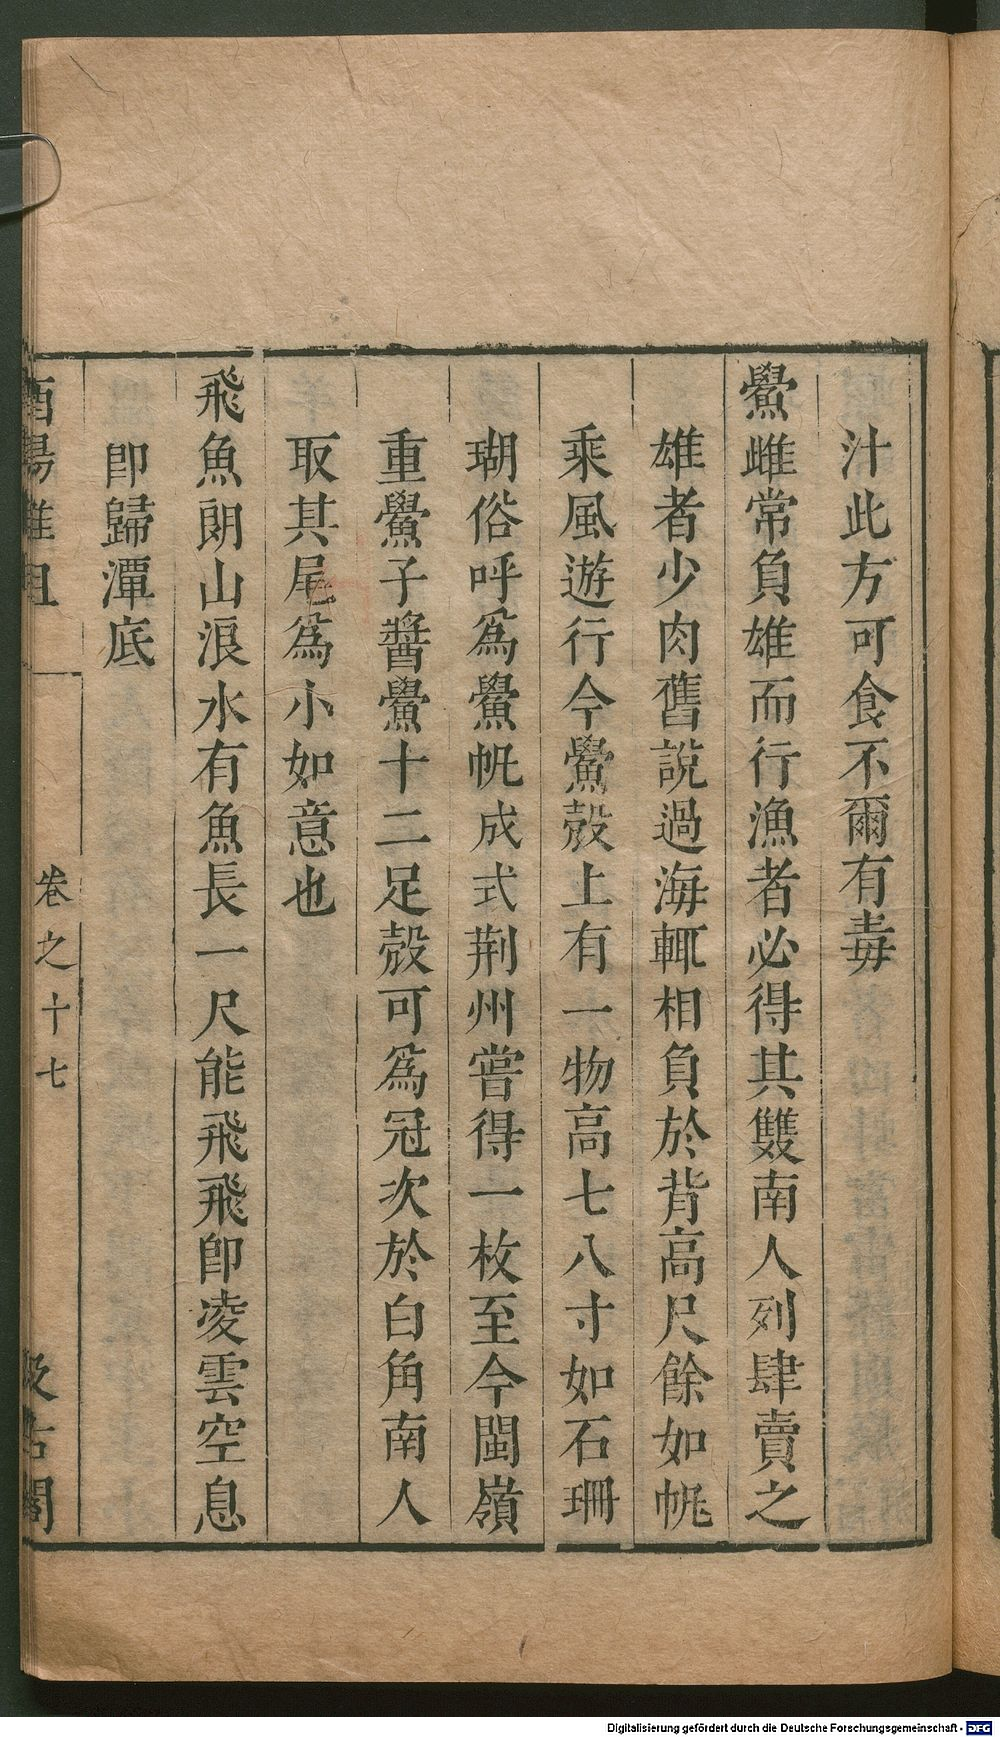 汁此方可食不爾有毒
鱟雌常負雄而行漁者必得其雙南人列肆賣之
雄者少肉舊說過海輒相負於背高尺餘如帆
乘風遊行今鱟殼上有一物高七八寸如石珊
瑚俗呼爲鱟帆成式荆州嘗得一枚至今閩嶺
重鱟子醬鱟十二足殼可爲冠次於白角南人
取其尾爲小如意也
飛魚朗山浪水有魚長一尺能飛飛卽凌雲空息
卽歸潭底
酉陽雜俎
卷之十七
汲古閣
Digitalisierung gefördert durch die Deutsche Forschungsgemeinschaft - DFG